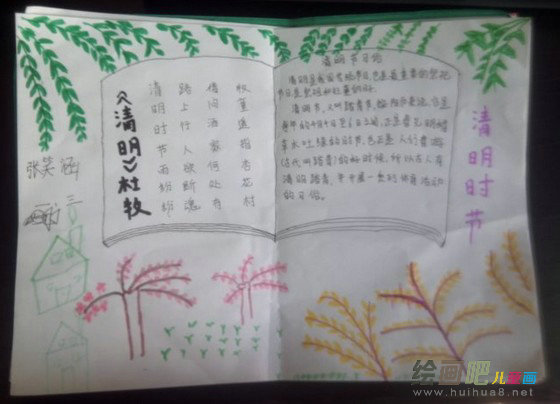 《清明》杜牧
清明时节雨纷纷
路上行人欲断魂
借问酒家何处有
牧童遥指杏花村
张笑涵
三
清明节习俗
清明是我国传统节日,也是最重要的祭祀
节日,是祭祖和扫墓的
清明节,又叫踏青节,
每年的4月4日至6日之间,正是春光明媚
草木吐绿的时节,也正是人们春游
(古代叫踏青)的好时候,所以古人有
清明踏青,并开展一系列体育活动
的习俗。
清明时节
绘画吧
儿童画
www.huihua8.net